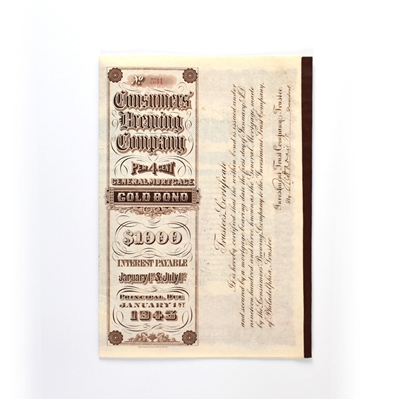 No
Consumers'
Brewing
Company
Per 4 Cent
GENERAL MORTGAGE
GOLD BOND
$1000
INTEREST PAYABLE
January 1st & July 1st
PRINCIPAL DUE
JANUARY 1st
1943
Trustee's Certificate
It is hereby certified that the within bond is issued under
and secured by a mortgage bearing date the first day of January A.D.
nineteen hundred and three, known as the General Mortgage, made
by the Consumers Brewing Company to the Investment Trust Company,
of Philadelphia, Trustee.
Investment Trust Company, Trustee.
By
President